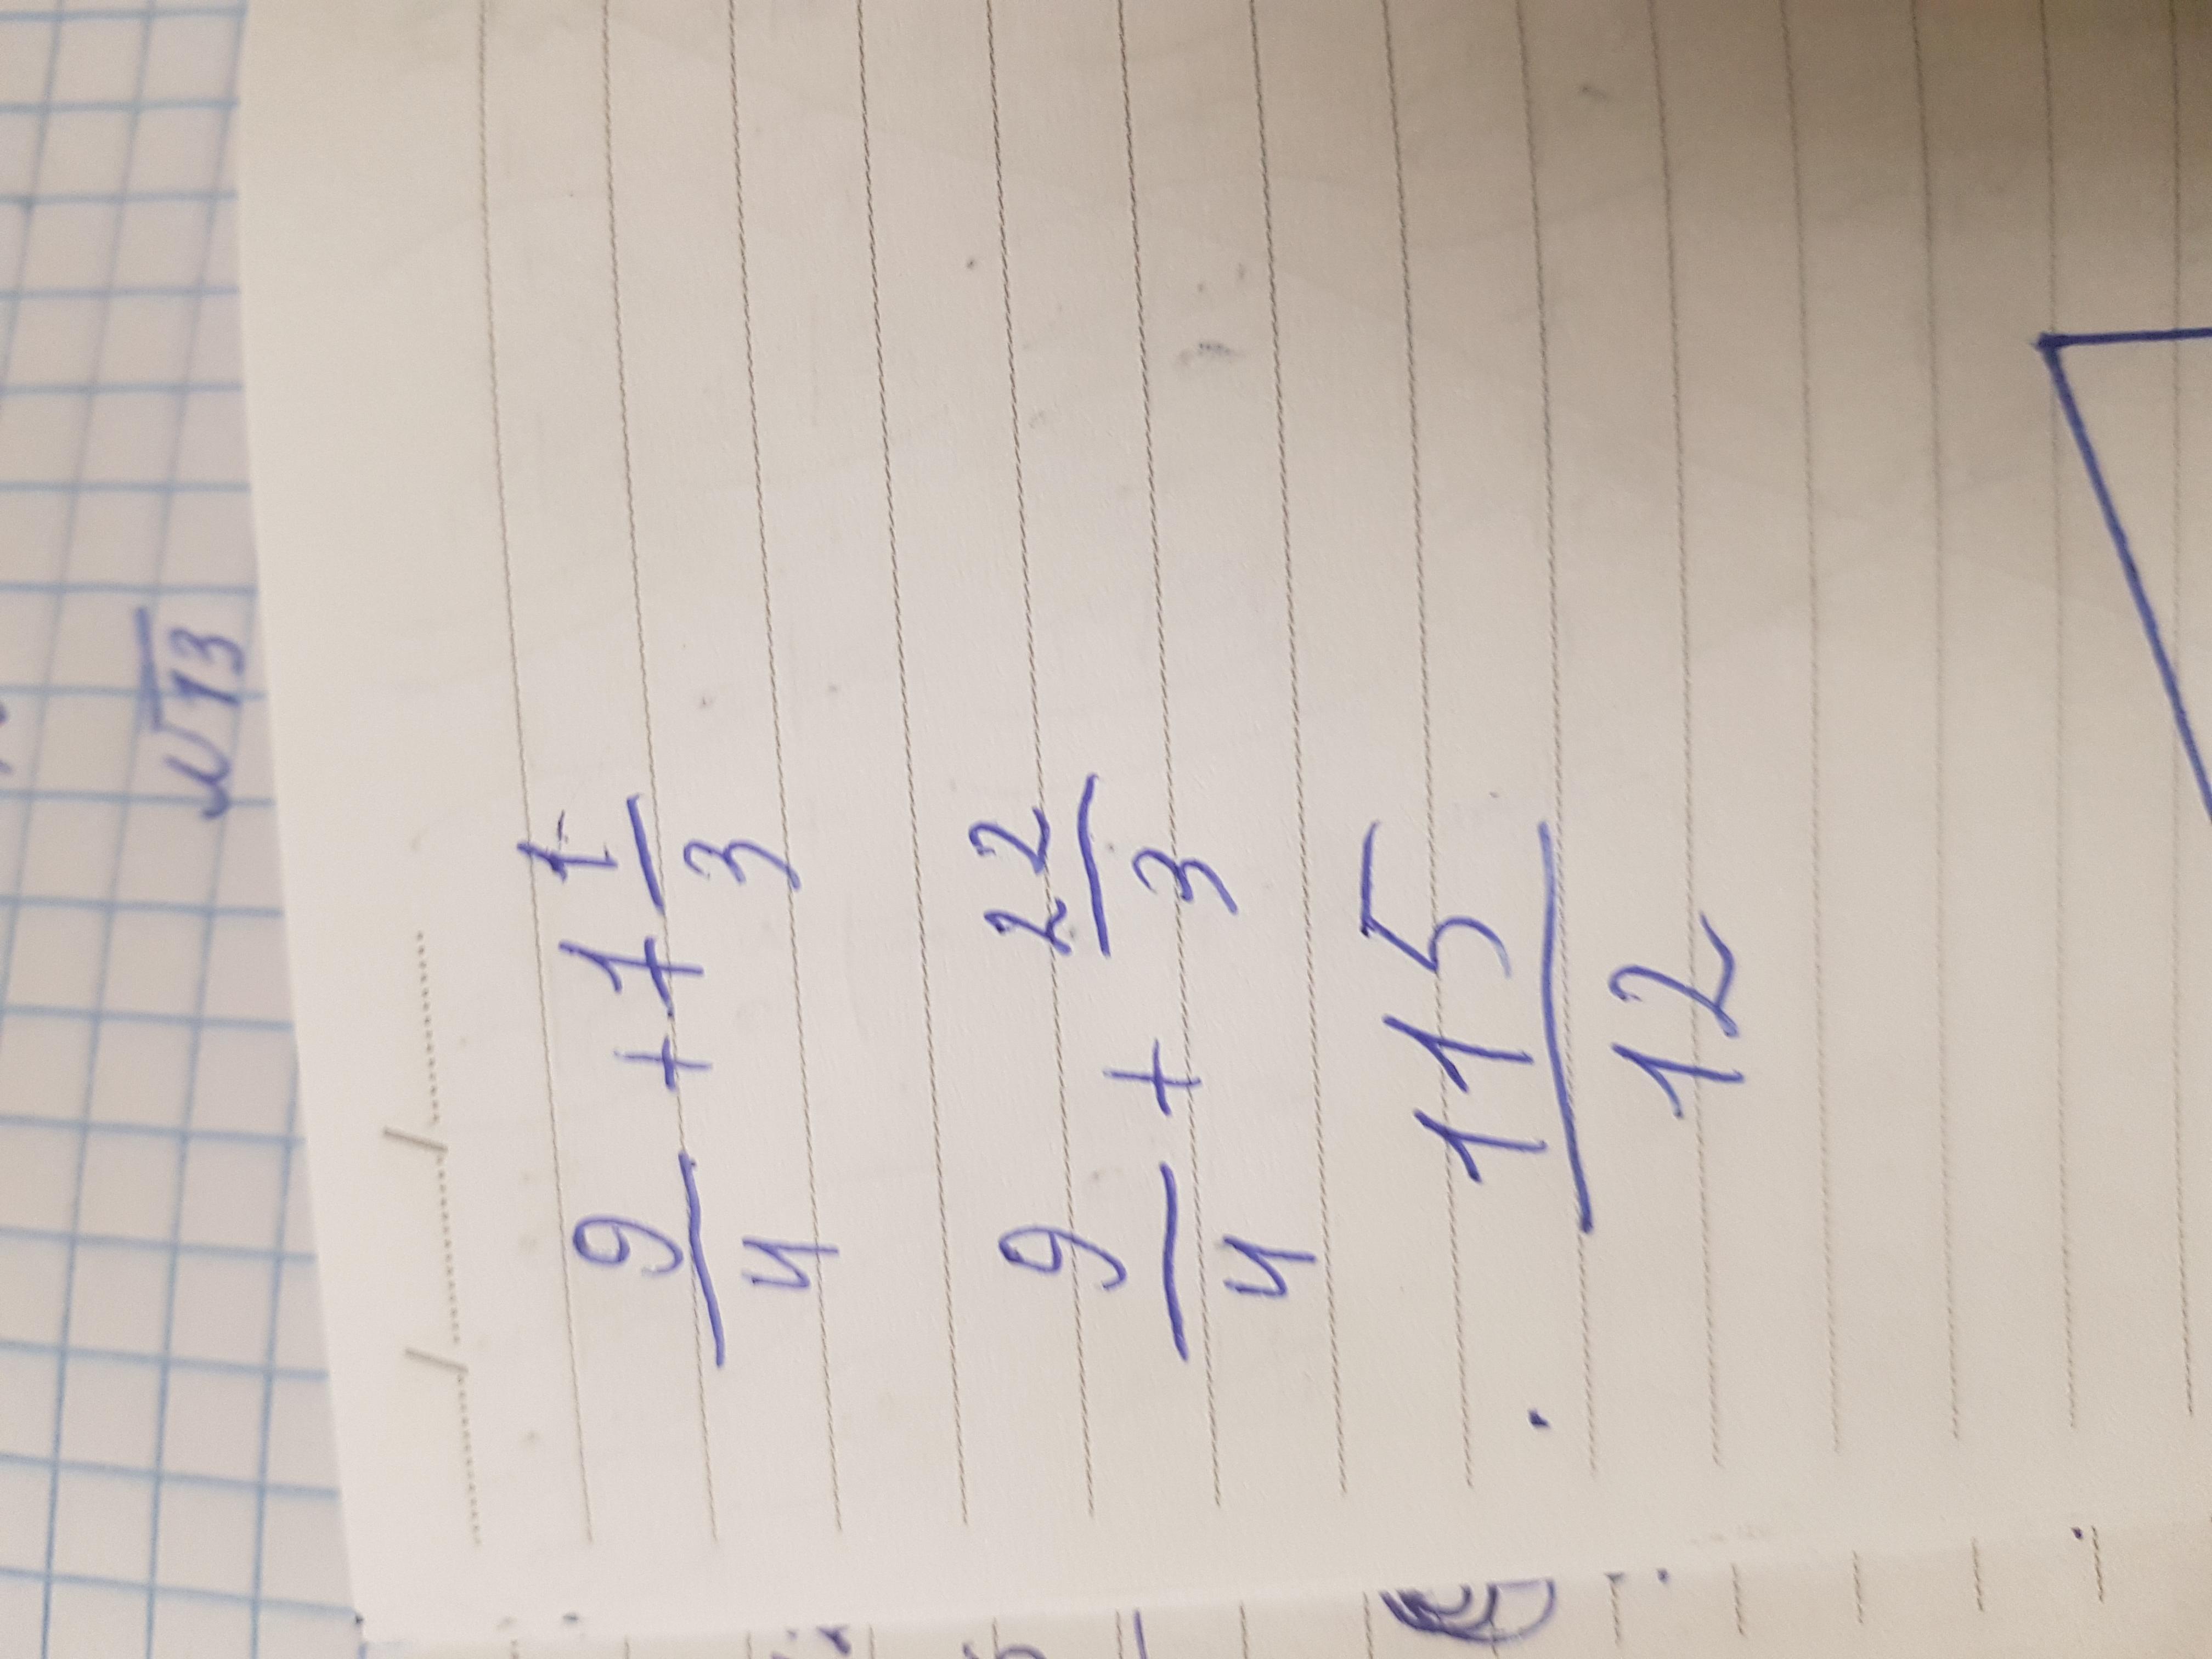 √13
9/4 + 7 1/3
9/4 + 22/3
115/12